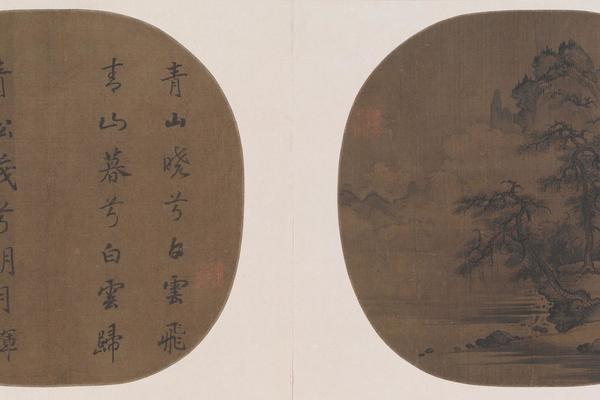 青山曉兮白雲飛
青山暮兮白雲歸
青松茂兮明月輝